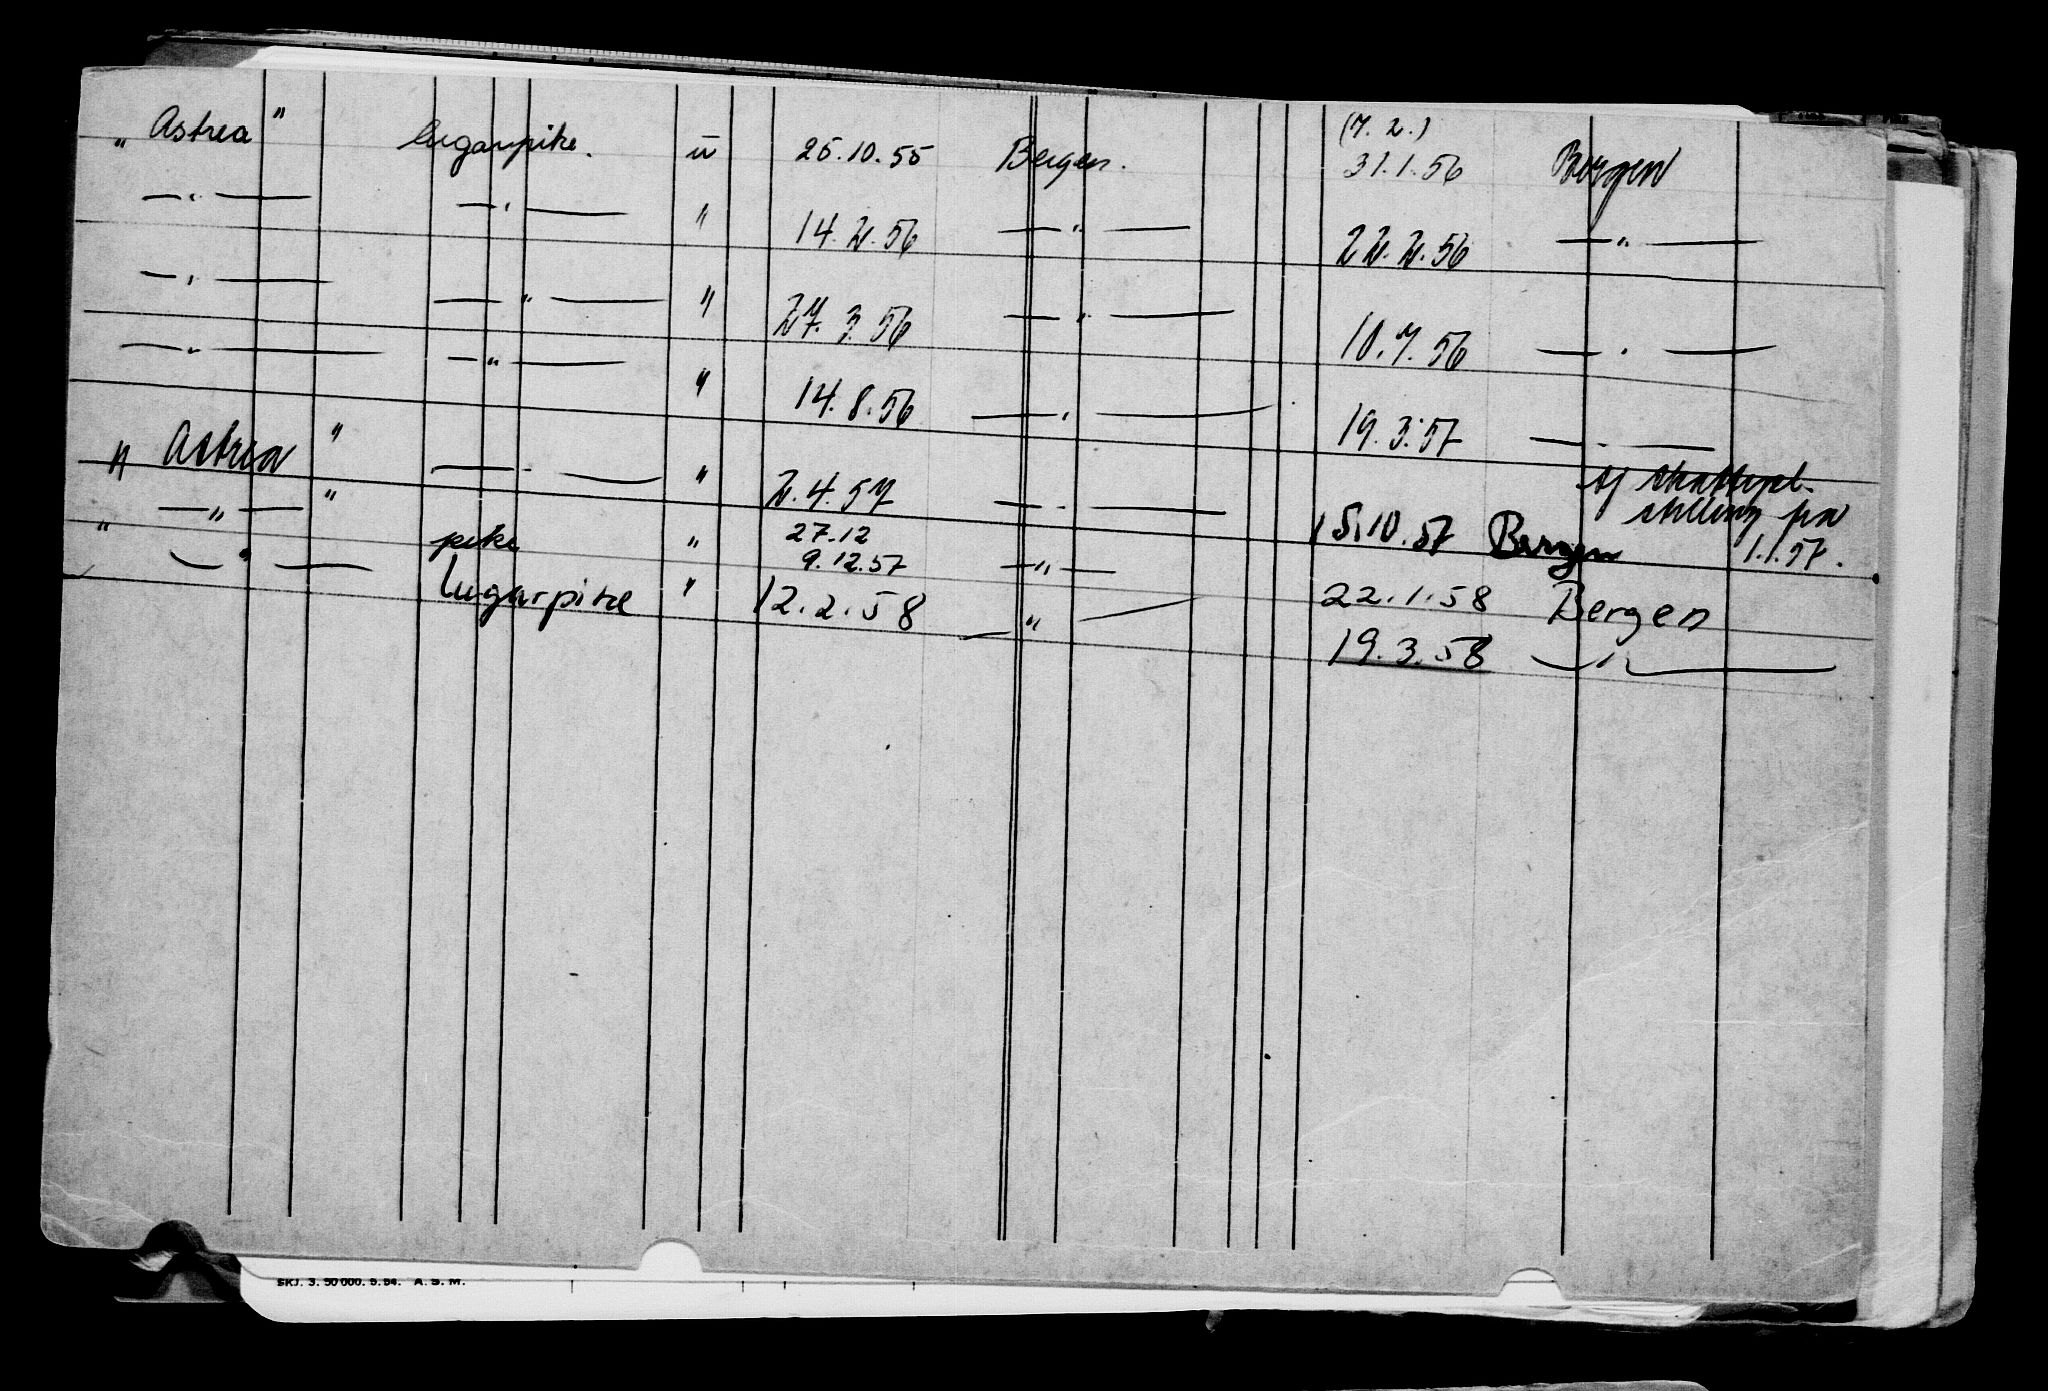 (7. 2.)
„ Astrea " lugarpike. u 25.10.55 Bergen. 31.1.56 Bergen
— " — — " — " 14.2.56 — " — 22.2.56 — " —
— " — — " — " 27.3.56 — " — 10.7.56 — " —
— " — — " — " 14.8.56 — " — 19.3.57 — " —
" Astrea " — " — " 2.4.57 — " — 15.10.57 Bergen
stilling på
1.1.57.
— " — " pike " 27.12
9.12.57 — " — 22.1.58 Bergen
" — " — Lugarpike " 12.2.58 — " — 19.3.58 — " —
SKJ. 3. 50 000. 9.54. A. S. M.